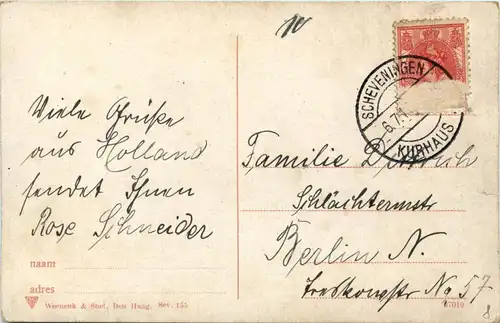 Viele Grüße
aus Holland
sendet Ihnen
Rose Schneider
naam
adres
Weenenk & Snel, Den Haag. Sev. 155
SCHEVENINGEN
6.7.1
KURHAUS
Familie
Schlächtermstr
Berlin N.
No 57
47010
8